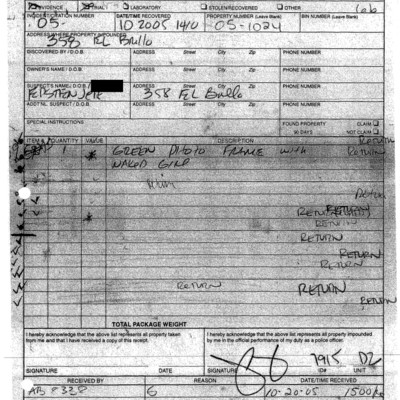 EVIDENCE LABORATORY STOLEN/RECOVERED OTHER
DATE/TIME RECOVERED PROPERTY NUMBER (Leave Blank) BIN NUMBER (Leave Blank)
05- 10 2005 1410 05-1024
ADDRESS WHERE PROPERTY IMPOUNDED
358 EL Brillo
DISCOVERED BY / D.O.B. ADDRESS Street City Zip PHONE NUMBER
OWNER'S NAME / D.O.B. ADDRESS Street City Zip PHONE NUMBER
SUSPECT'S NAME / D.O.B. ADDRESS Street City Zip PHONE NUMBER
358 EL Brillo
ADDT'NL SUSPECT / D.O.B. ADDRESS Street City Zip PHONE NUMBER
SPECIAL INSTRUCTIONS FOUND PROPERTY CLAIM
90 DAYS NOT CLAIM
ITEM # QUANTITY VALUE DESCRIPTION RETURN
GREEN PHOTO FRAME WITH RETURN
NAKED GIRL
RETURN
RETURN
RETURN
RETURN
RETURN
RETURN RETURN
RETURN
TOTAL PACKAGE WEIGHT
I hereby acknowledge that the above list represents all property taken
from me and that I have received a copy of this receipt.
I hereby acknowledge that the above list represents all property impounded
by me in the official performance of my duty as a police officer.
7915 D2
SIGNATURE DATE SIGNATURE ID# UNIT
RECEIVED BY REASON DATE/TIME RECEIVED
6 10-20-05 1500